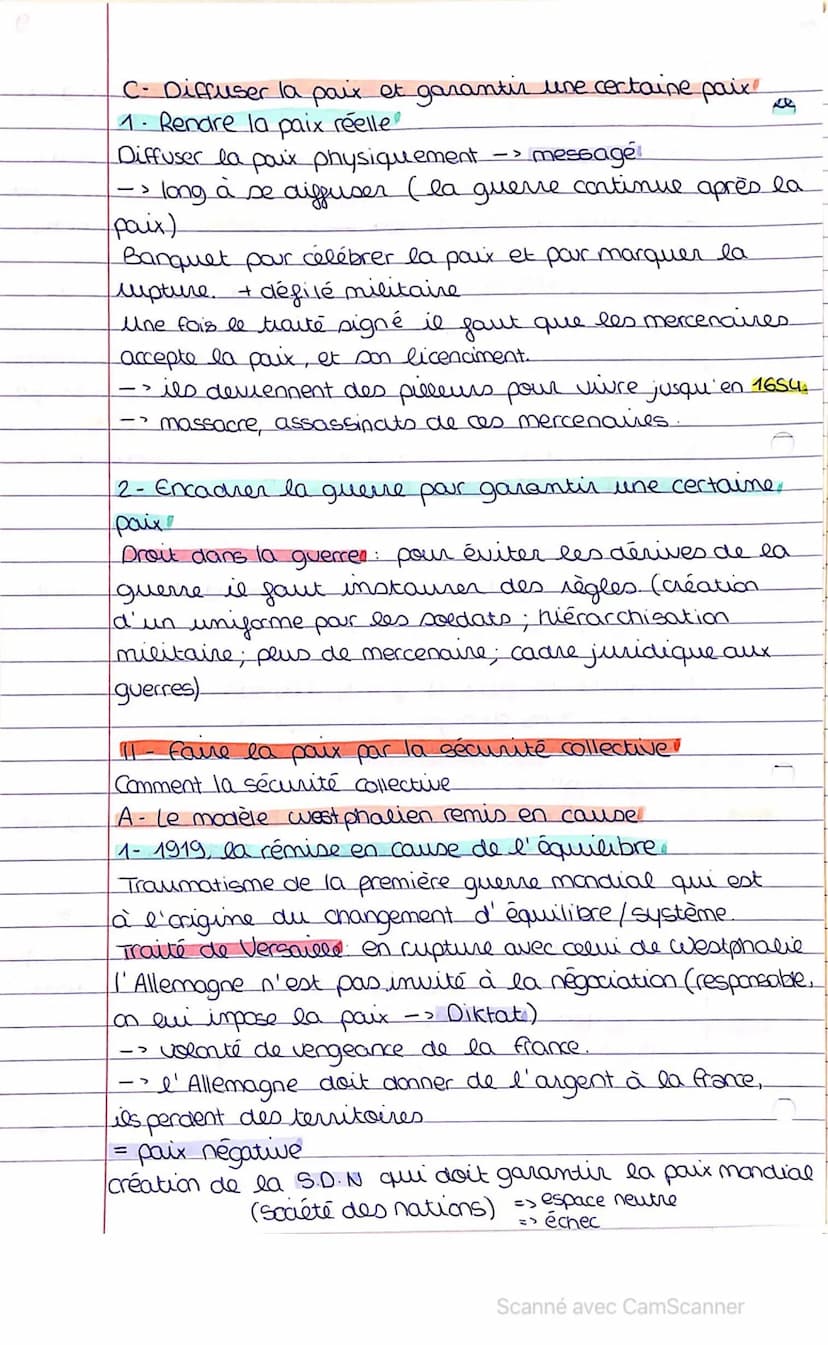 C- Diffuser la paix et garantir une certaine paix
1- Rendre la paix réelle
Diffuser la paix physiquement -> messagé
-> long à se diffuser (la guerre continue après la
paix)
Banquet pour célébrer la paix et pour marquer la
rupture. + défilé militaire
Une fois le traité signé il faut que les mercenaires
accepte la paix, et son licenciment.
-> ils deviennent des pilleurs pour vivre jusqu'en 1654.
-> massacre, assassinats de ces mercenaires.
2- Encadrer la guerre pour garantir une certaine
paix
Droit dans la guerre : pour éviter les dérives de la
guerre il faut instaurer des règles. (création
d'un uniforme par les soldats ; hiérarchisation
militaire ; plus de mercenaire ; cadre juridique aux
guerres)
II- Faire la paix par la sécurité collective
Comment la sécurité collective
A- Le modèle westphalien remis en cause
1- 1919, la rémise en cause de l'équilibre.
Traumatisme de la première guerre mondial qui est
à l'origine du changement d'équilibre/système.
Traité de Versailles : en rupture avec celui de Westphalie
l'Allemagne n'est pas invité à la négociation (responsable,
on lui impose la paix -> Diktat)
-> volonté de vengeance de la France.
-> l'Allemagne doit donner de l'argent à la France,
ils perdent des territoires
= paix négative
création de la S.D.N qui doit garantir la paix mondial
(Société des nations) => espace neutre
=> échec
Scanné avec CamScanner